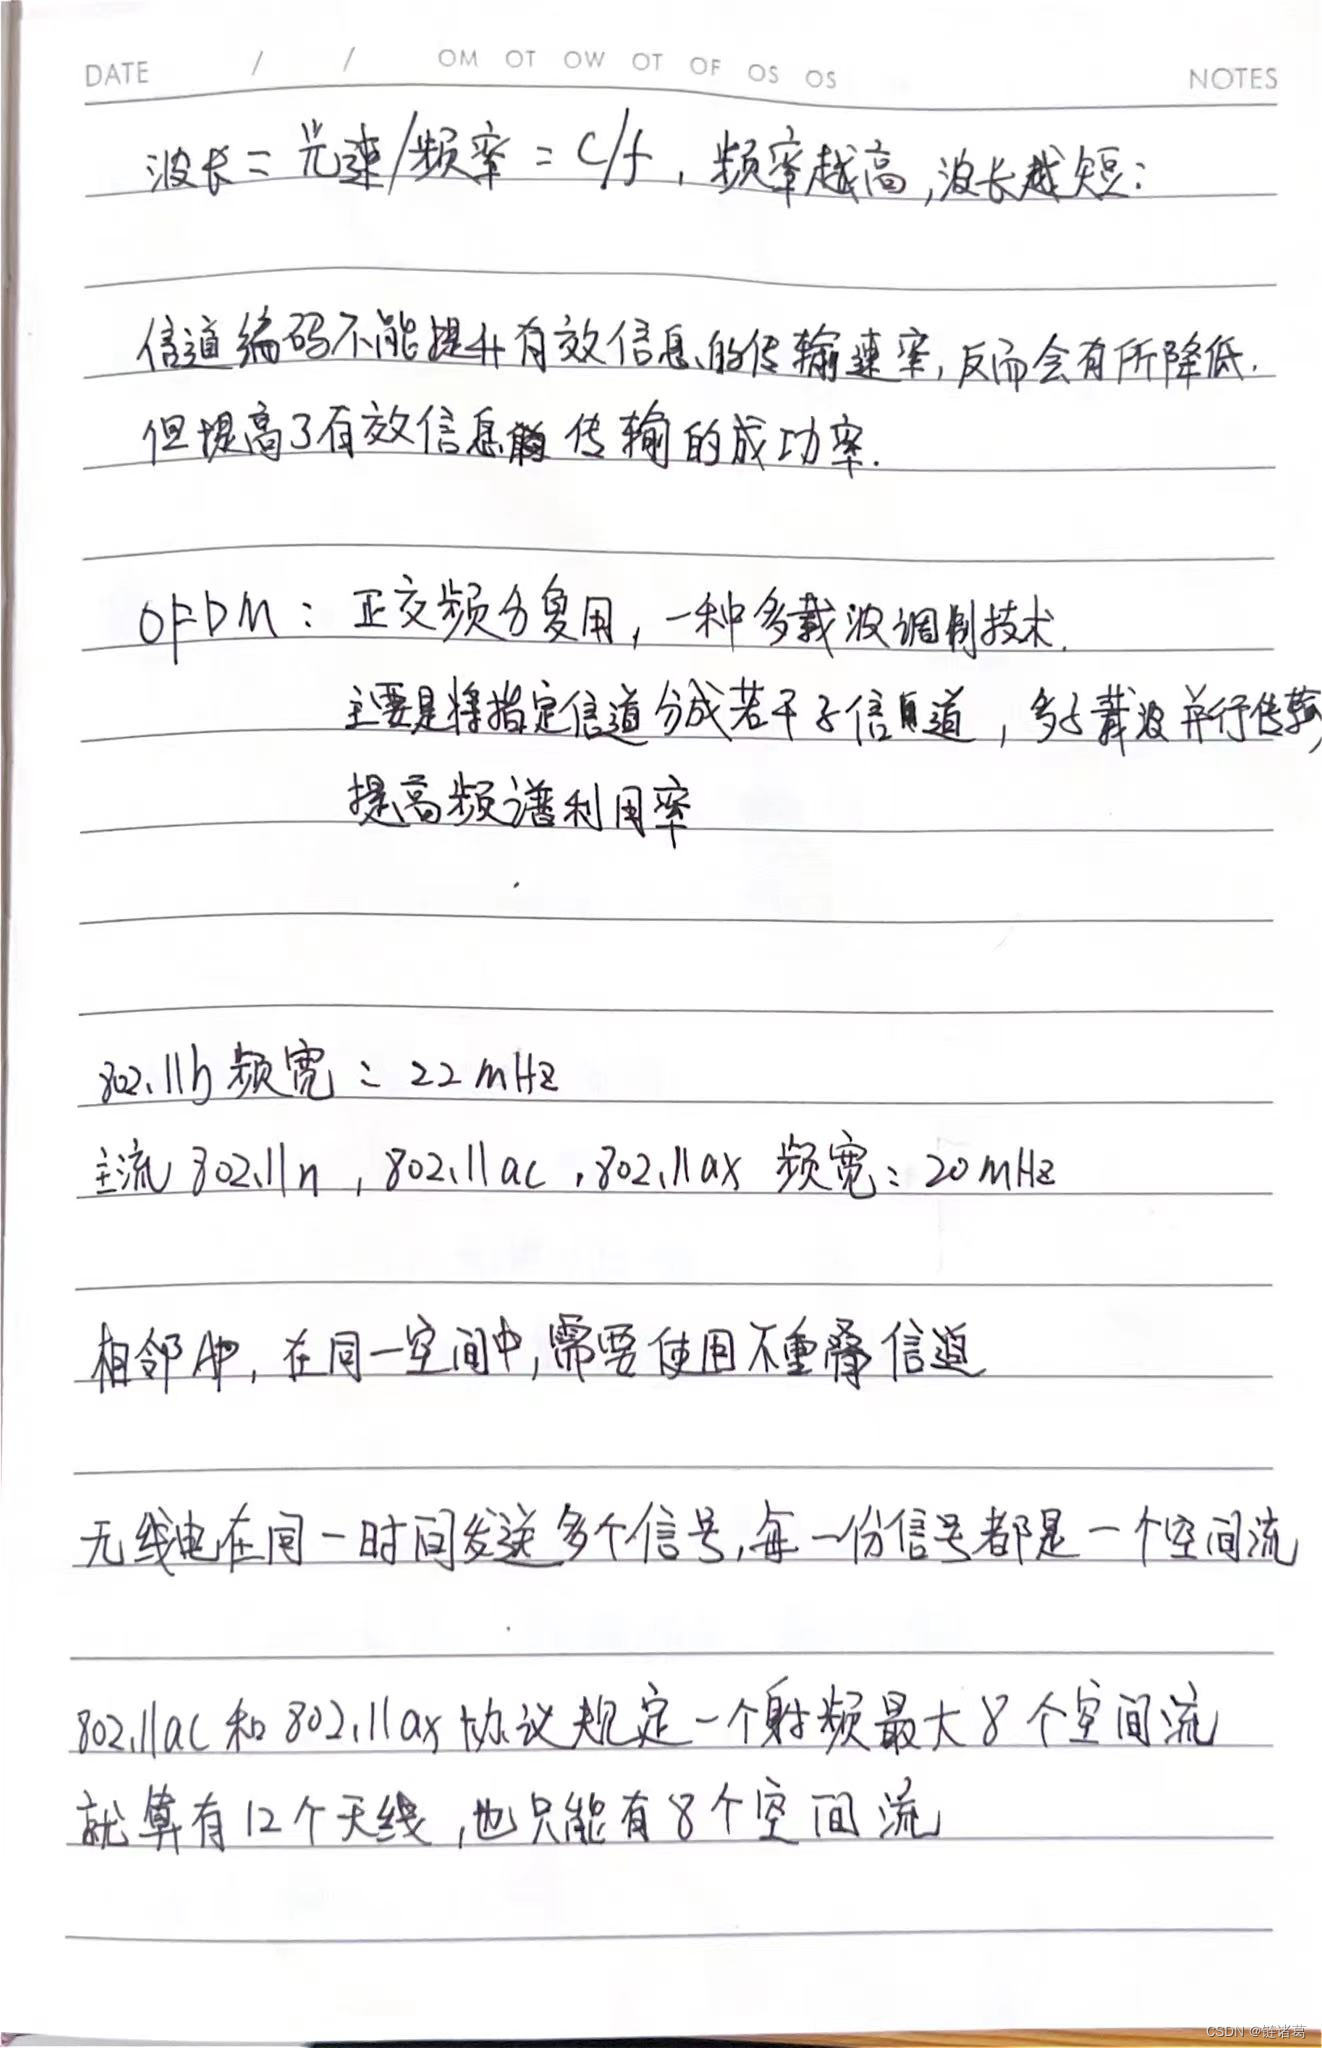 DATE / / OM OT OW OT OF OS OS NOTES
波长=光速/频率=c/f，频率越高，波长越短：
信道编码不能提升有效信息的传输速率，反而会有所降低.
但提高了有效信息传输的成功率.
OFDM：正交频分复用，一种多载波调制技术.
主要是将指定信道分成若干子信道，多子载波并行传输，
提高频谱利用率
802.11b 频宽：22mHz
主流 802.11n，802.11ac，802.11ax 频宽：20mHz
相邻AP，在同一空间中，需要使用不重叠信道
无线电在同一时间发送多个信号，每一份信号都是一个空间流
802.11ac 和 802.11ax 协议规定一个射频最大8个空间流
就算有12个天线，也只能有8个空间流
CSDN @链诸葛